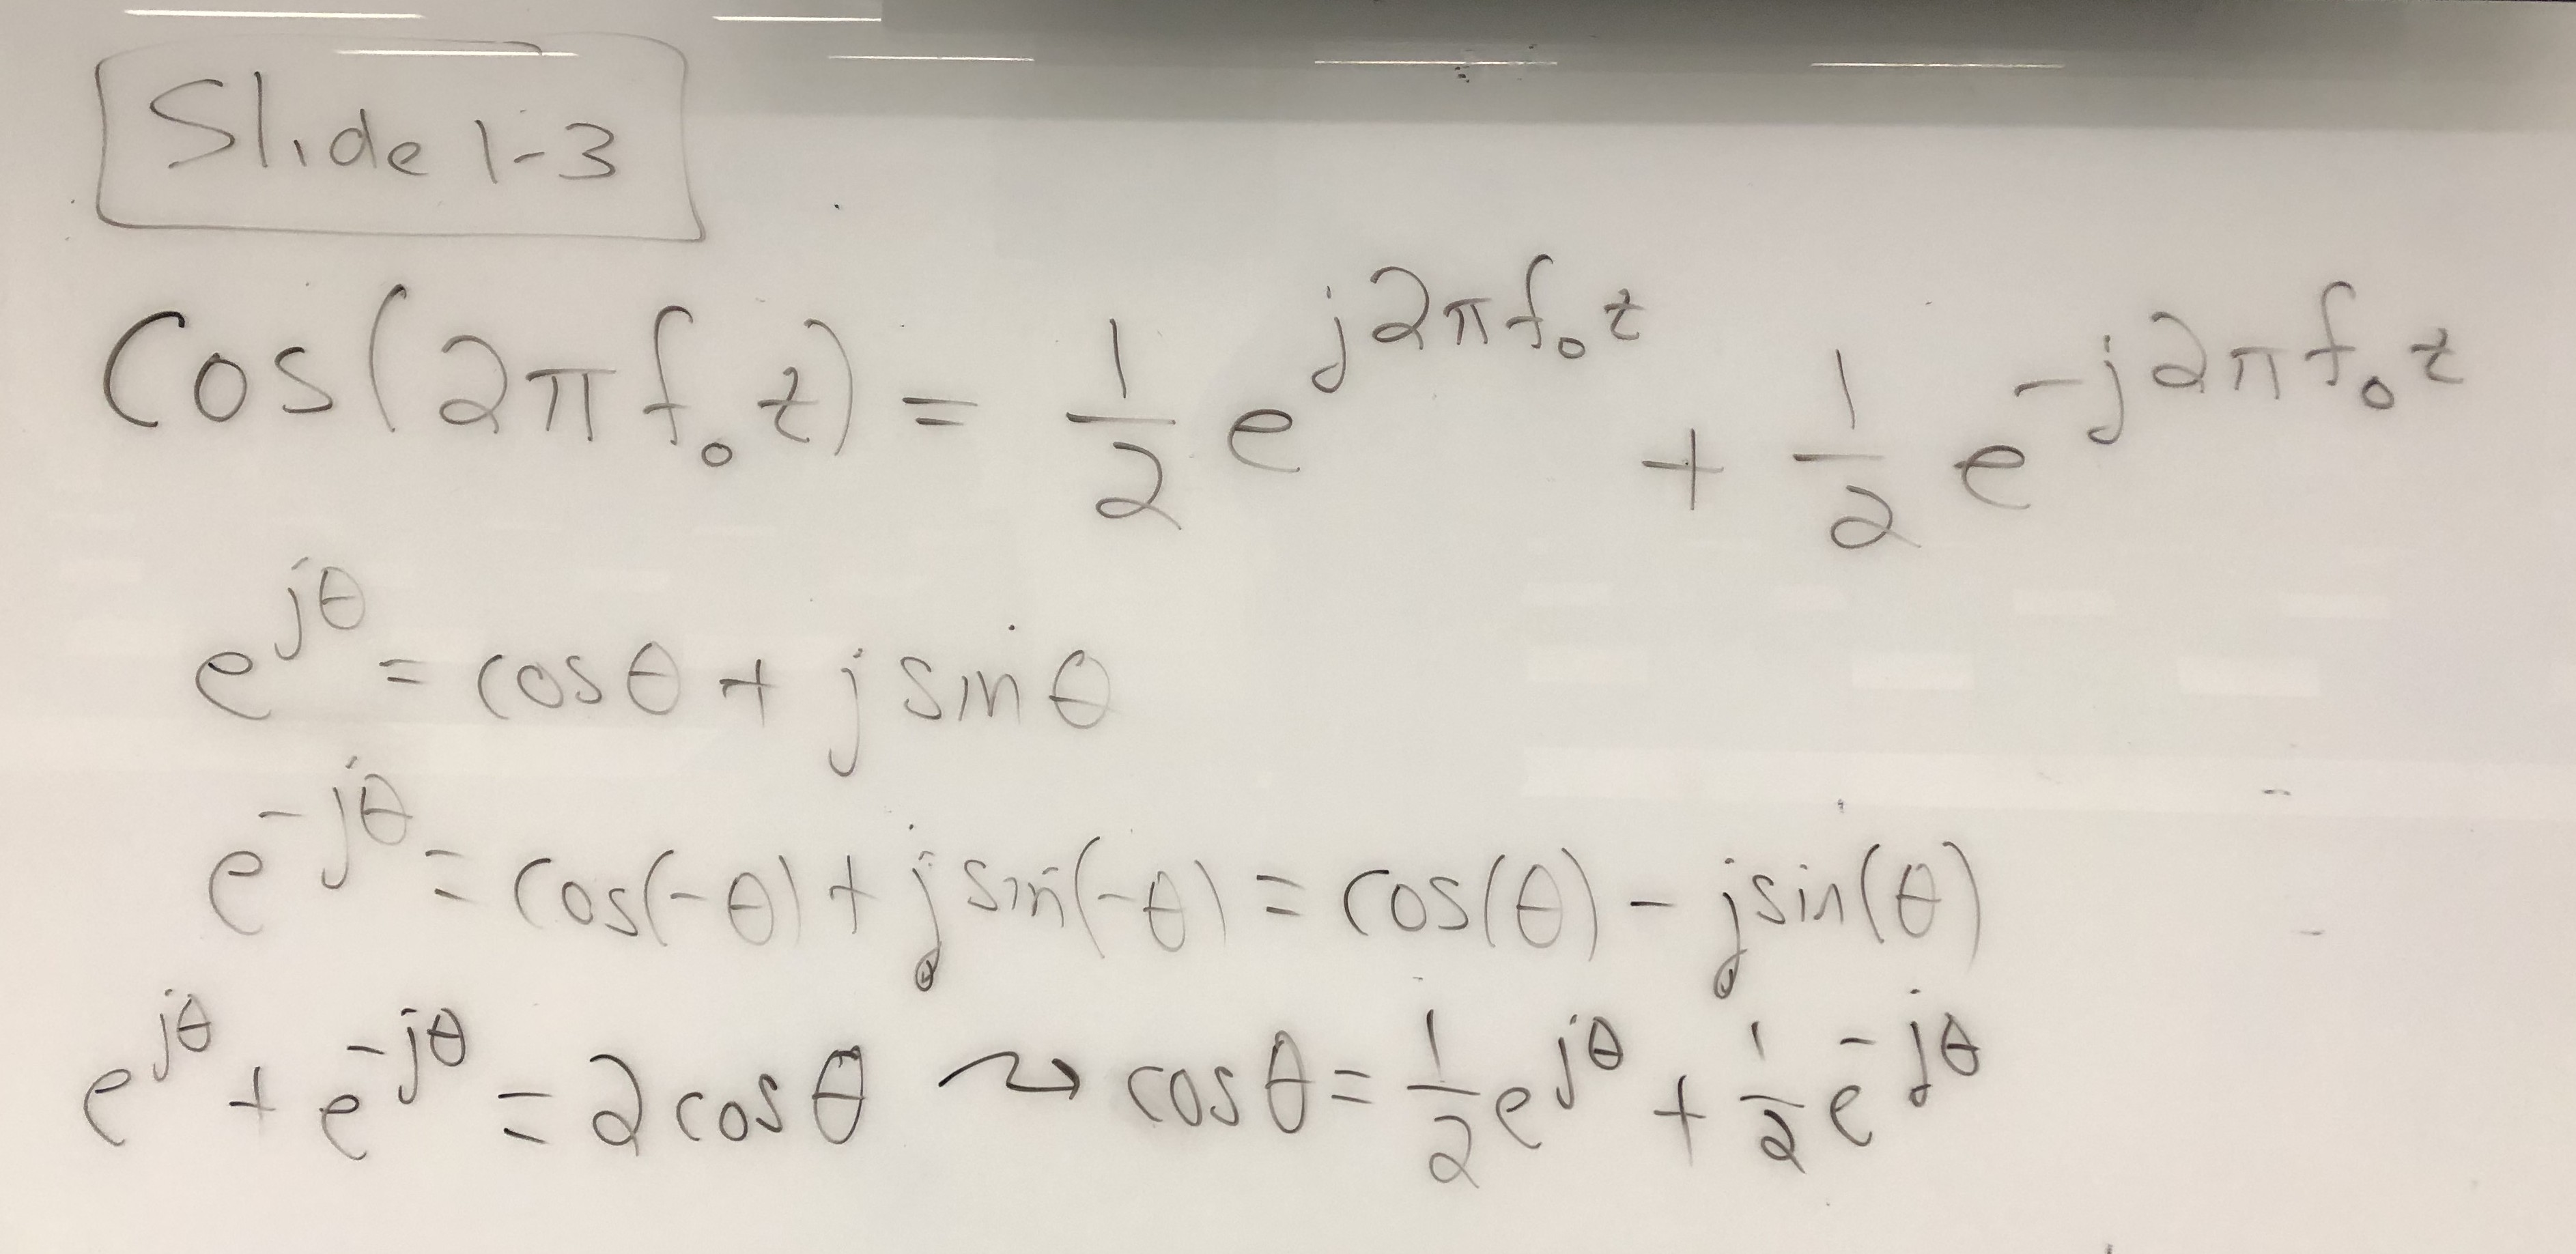 Slide 1-3
cos(2πf₀t) = 1/2 e^{j2πf₀t} + 1/2 e^{-j2πf₀t}
e^{jθ} = cosθ + j sinθ
e^{-jθ} = cos(-θ) + j sin(-θ) = cos(θ) - jsin(θ)
e^{jθ} + e^{-jθ} = 2 cosθ ⤳ cosθ = 1/2 e^{jθ} + 1/2 e^{-jθ}